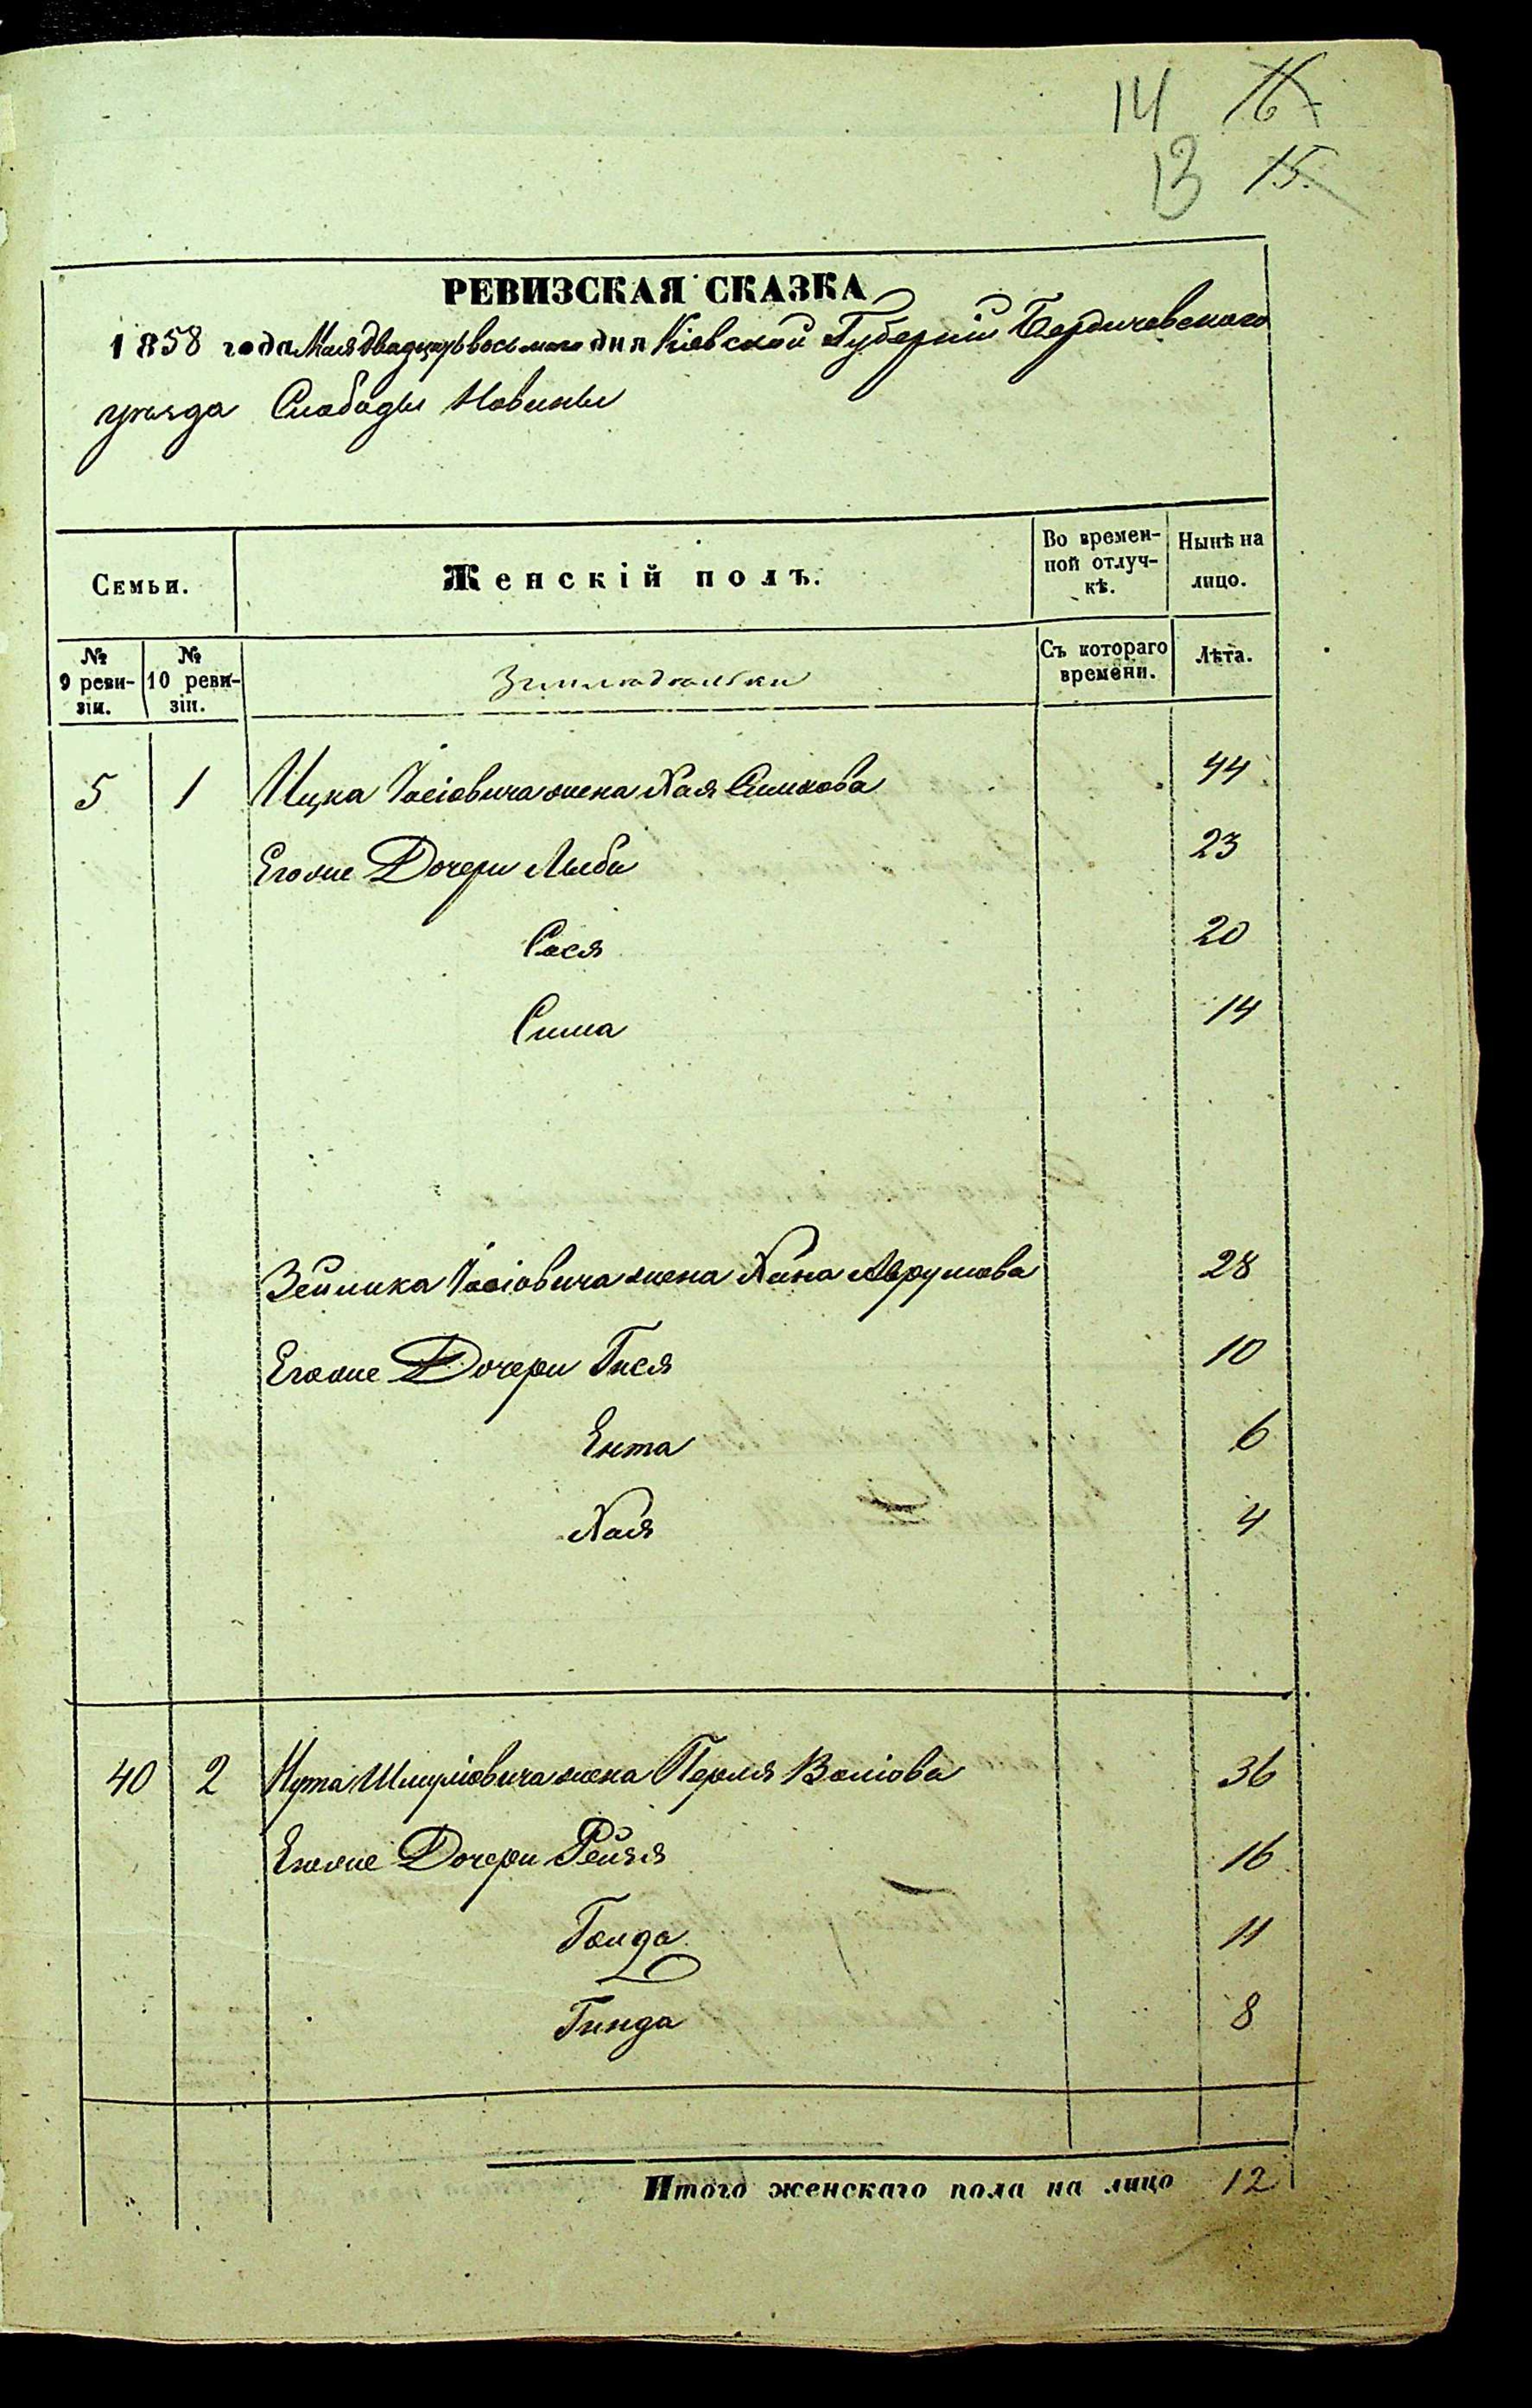 14 16
13 15.
РЕВИЗСКАЯ СКАЗКА
1858 года Мая двадцать восьмого дня Кіевской Губерніи Бердичевского
уѣзда Слабоды Новины
Семьи.
Женскій полъ.
Во времен-
ной отлуч-
кѣ.
Нынѣ на
лицо.
№
9 реви-
зіи.
№
10 реви-
зіи.
Земледельки
Съ котораго
времени.
Лѣта.
5 1 Ицка Іосіовича жена Хая Симхова 44
Егоже Дочери Либа 23
Сося 20
Сима 14
Зейлика Іосіовича жена Хана Аврумова 28
Егоже Дочери Гися 10
Ента 6
Хая 4
40 2 Нута Шмуліовича жена Перля Воліова 36
Егоже Дочери Рейзя 16
Голда 11
Гинда 8
Итого женскаго пола на лицо 12